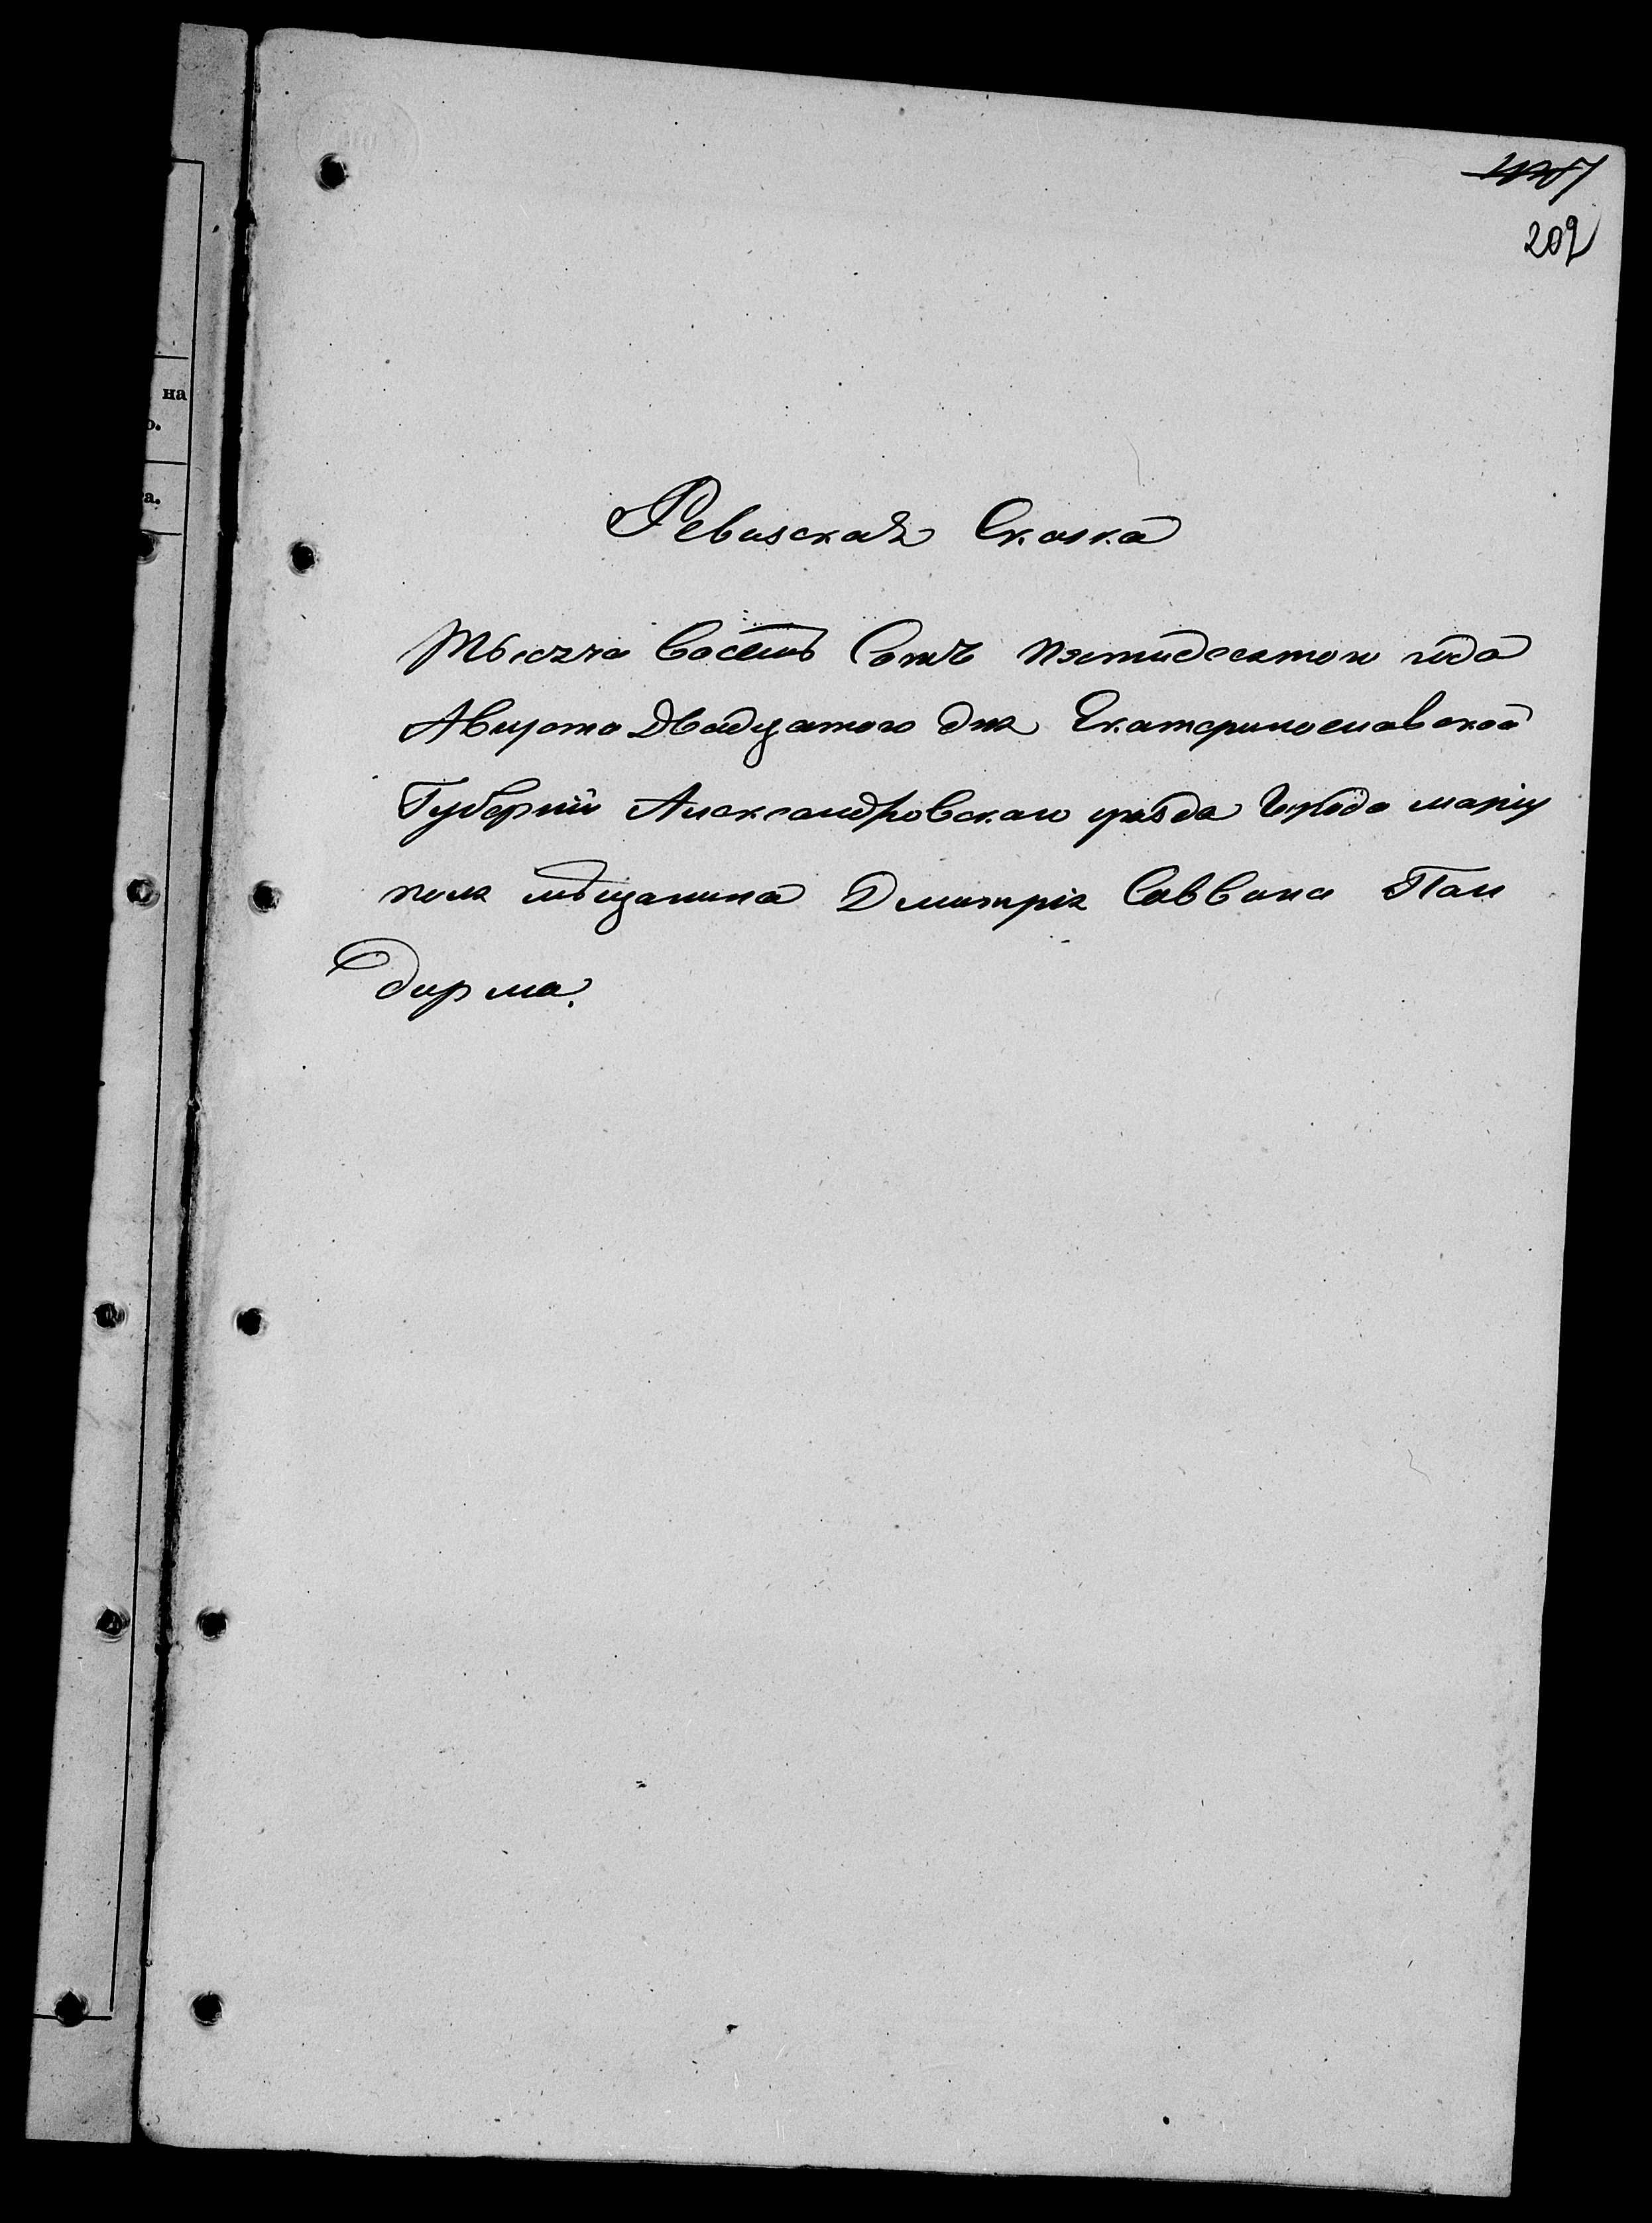 202
на
о.
а.
Ревизская Сказка
Тысяча восемь Сотъ пятидесятого года
Августа Двадцатого дня Екатеринославской
Губернiи Александровскаго уѣзда Города марiу
поля мѣщанина Дмитрiя Саввина Пан
дирма.